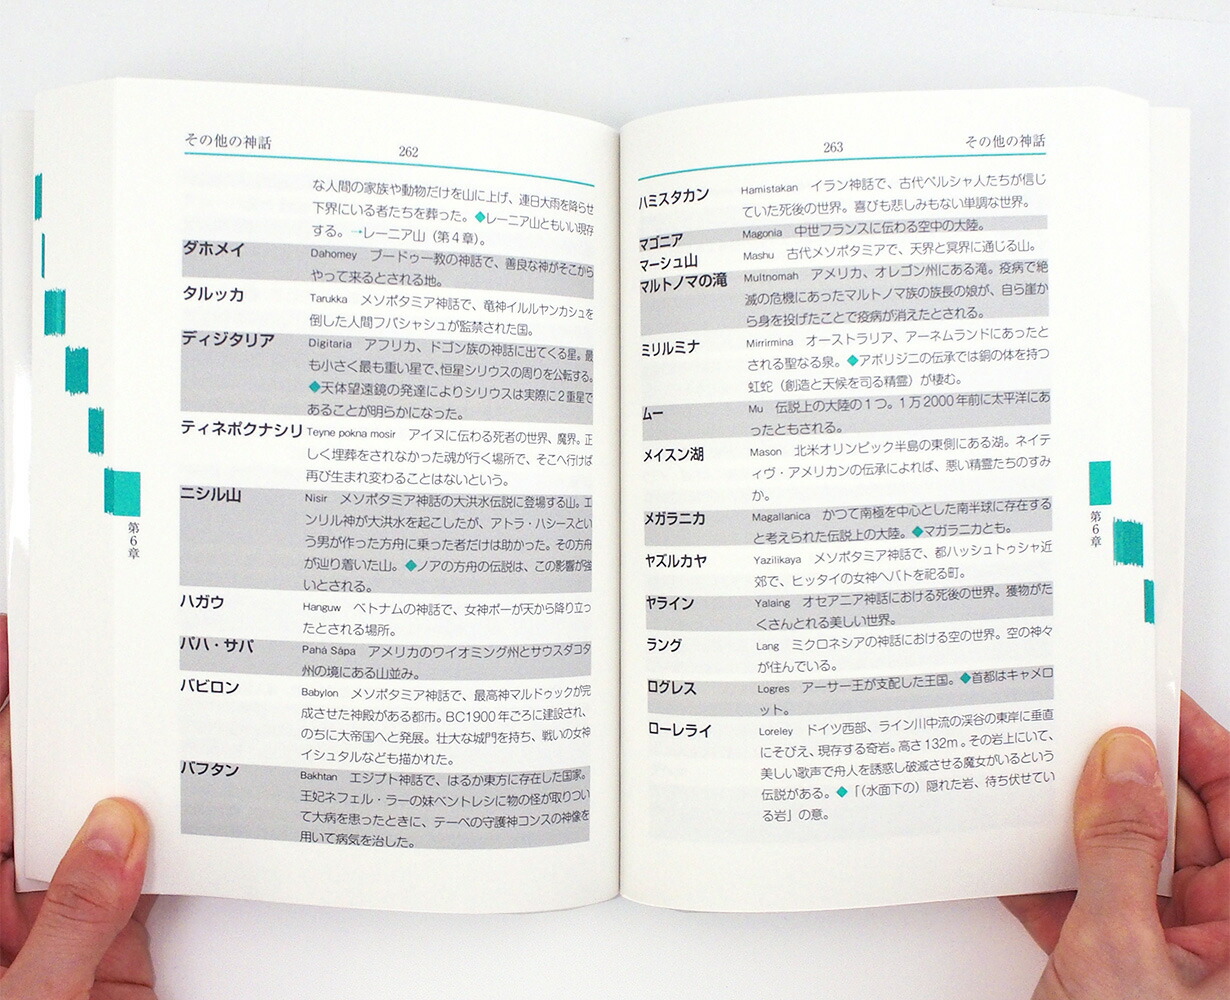 その他の神話
262
な人間の家族や動物だけを山に上げ、連日大雨を降らせ
下界にいる者たちを葬った。◆レーニア山ともいい現存
する。→レーニア山（第4章）。
ダホメイ Dahomey ブードゥー教の神話で、善良な神がそこから
やって来るとされる地。
タルッカ Tarukka メソポタミア神話で、竜神イルルヤンカシュを
倒した人間フパシャシュが監禁された国。
ディジタリア Digitaria アフリカ、ドゴン族の神話に出てくる星。最
も小さく最も重い星で、恒星シリウスの周りを公転する。
◆天体望遠鏡の発達によりシリウスは実際に2重星で
あることが明らかになった。
ティネポクナシリ Teyne pokna mosir アイヌに伝わる死者の世界、魔界。正
しく埋葬をされなかった魂が行く場所で、そこへ行けば
再び生まれ変わることはないという。
ニシル山 Nisir メソポタミア神話の大洪水伝説に登場する山。エ
ンリル神が大洪水を起こしたが、アトラ・ハシースとい
う男が作った方舟に乗った者だけは助かった。その方舟
が辿り着いた山。◆ノアの方舟の伝説は、この影響が強
いとされる。
ハガウ Hanguw ベトナムの神話で、女神ポーが天から降り立っ
たとされる場所。
パハ・サパ Pahá Sápa アメリカのワイオミング州とサウスダコタ
州の境にある山並み。
バビロン Babylon メソポタミア神話で、最高神マルドゥックが完
成させた神殿がある都市。BC1900年ごろに建設され、
のちに大帝国へと発展。壮大な城門を持ち、戦いの女神
イシュタルなども描かれた。
バフタン Bakhtan エジプト神話で、はるか東方に存在した国家。
王妃ネフェル・ラーの妹ベントレシに物の怪が取りつい
て大病を患ったときに、テーベの守護神コンスの神像を
用いて病気を治した。
第6章
263
その他の神話
ハミスタカン Hamistakan イラン神話で、古代ペルシャ人たちが信じ
ていた死後の世界。喜びも悲しみもない単調な世界。
マゴニア Magonia 中世フランスに伝わる空中の大陸。
マーシュ山 Mashu 古代メソポタミアで、天界と冥界に通じる山。
マルトノマの滝 Multnomah アメリカ、オレゴン州にある滝。疫病で絶
滅の危機にあったマルトノマ族の族長の娘が、自ら崖か
ら身を投げたことで疫病が消えたとされる。
ミリルミナ Mirrirmina オーストラリア、アーネムランドにあったと
される聖なる泉。◆アボリジニの伝承では銅の体を持つ
虹蛇（創造と天候を司る精霊）が棲む。
ムー Mu 伝説上の大陸の1つ。1万2000年前に太平洋にあ
ったともされる。
メイスン湖 Mason 北米オリンピック半島の東側にある湖。ネイテ
ィヴ・アメリカンの伝承によれば、悪い精霊たちのすみ
か。
メガラニカ Magallanica かつて南極を中心とした南半球に存在する
と考えられた伝説上の大陸。◆マガラニカとも。
ヤズルカヤ Yazilikaya メソポタミア神話で、都ハッシュトゥシャ近
郊で、ヒッタイの女神ヘパトを祀る町。
ヤライン Yalaing オセアニア神話における死後の世界。獲物がた
くさんとれる美しい世界。
ラング Lang ミクロネシアの神話における空の世界。空の神々
が住んでいる。
ログレス Logres アーサー王が支配した王国。◆首都はキャメロ
ット。
ローレライ Loreley ドイツ西部、ライン川中流の渓谷の東岸に垂直
にそびえ、現存する奇岩。高さ132m。その岩上にいて、
美しい歌声で舟人を誘惑し破滅させる魔女がいるという
伝説がある。◆「（水面下の）隠れた岩、待ち伏せてい
る岩」の意。
第6章